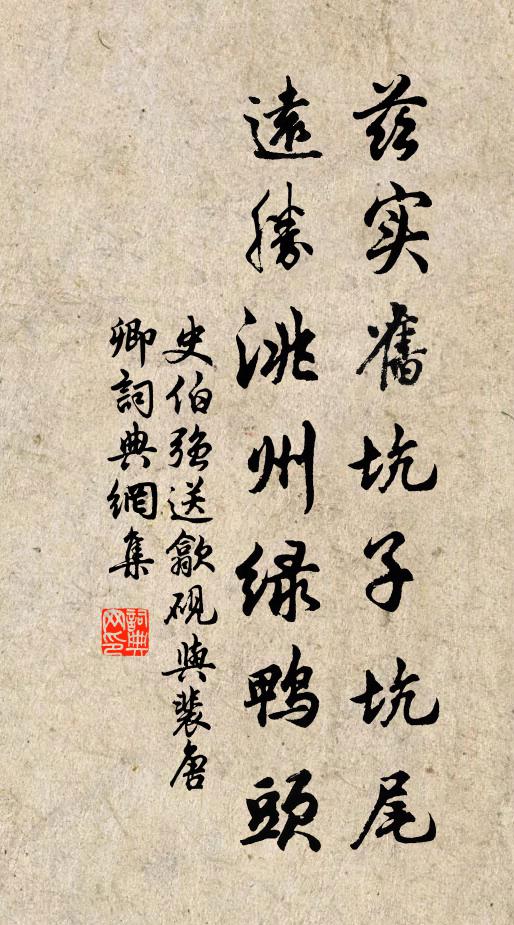 兹实旧坑子坑尾
远胜洮州绿鸭头
史伯强送歙砚与裴唐
卿词典网集
词典网印